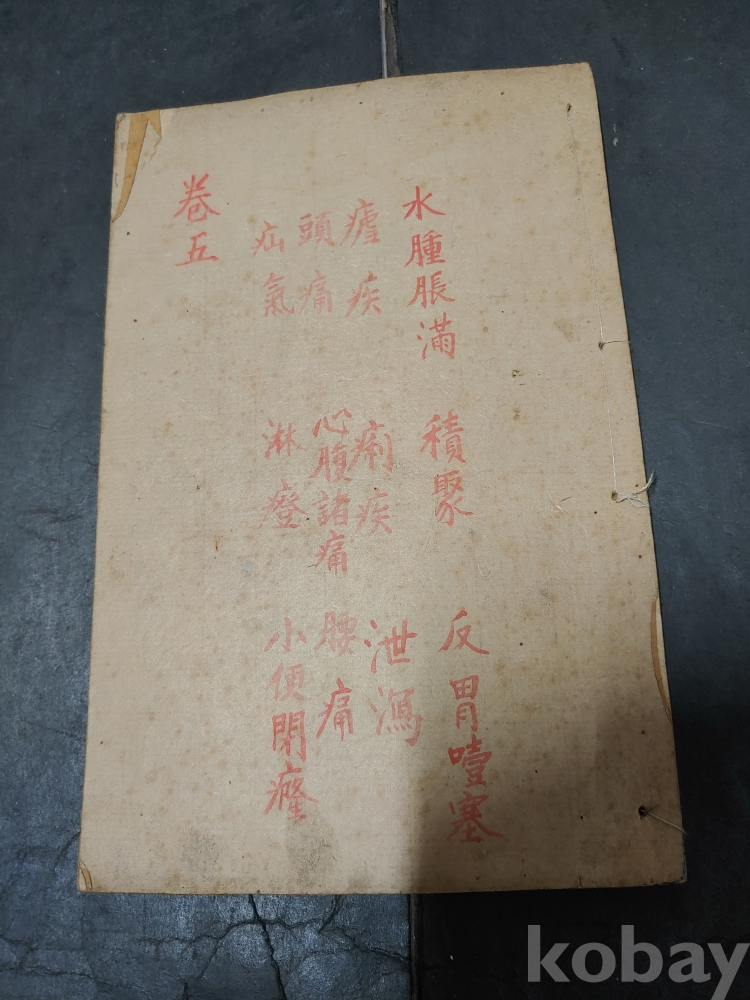 水腫脹滿 積聚 反胃噎塞
瘧疾 痢疾 泄瀉
頭痛 心腹諸痛 腰痛
疝氣 淋 小便閉癃
卷五
kobay